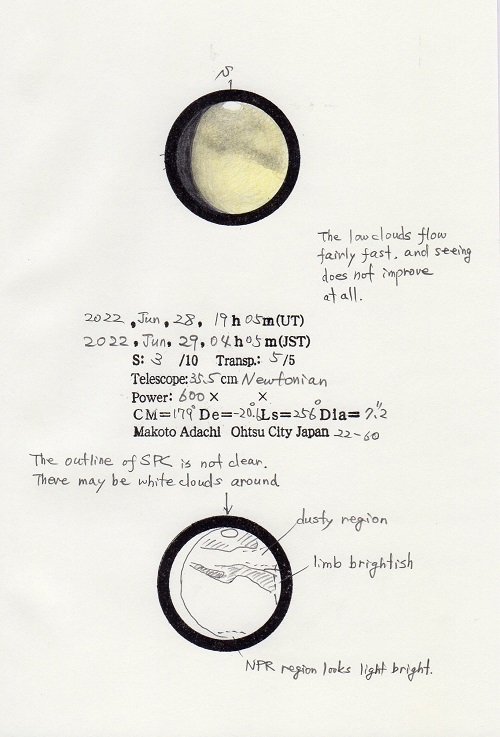 S
The low clouds flow
fairly fast, and seeing
does not improve
at all.
2022, Jun, 28, 19h 05m(UT)
2022, Jun, 29, 04h 05m(JST)
S: 3 /10 Transp.: 5/5
Telescope: 35.5 cm Newtonian
Power: 600 × ×
CM=179° De=-20.6° Ls=256° Dia= 7."2
Makoto Adachi Ohtsu City Japan 22-60
The outline of SPC is not clear.
There may be white clouds around
dusty region
limb brightish
NPR region looks light bright.